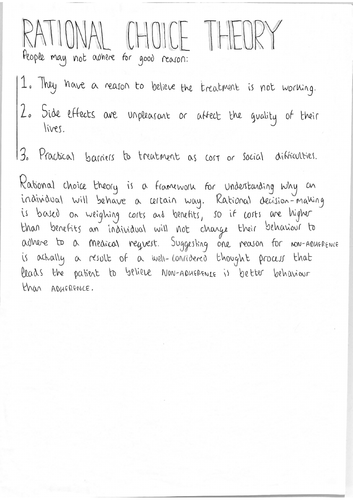 RATIONAL CHOICE THEORY
People may not adhere for good reason:
1. They have a reason to believe the treatment is not working.
2. Side effects are unpleasant or affect the quality of their
lives.
3. Practical barriers to treatment as cost or social difficulties.
Rational choice theory is a framework for understanding why an
individual will behave a certain way. Rational decision-making
is based on weighing costs and benefits, so if costs are higher
than benefits an individual will not change their behaviour to
adhere to a medical request. Suggesting one reason for NON-ADHERENCE
is actually a result of a well-considered thought process that
leads the patient to believe NON-ADHERENCE is better behaviour
than ADHERENCE.